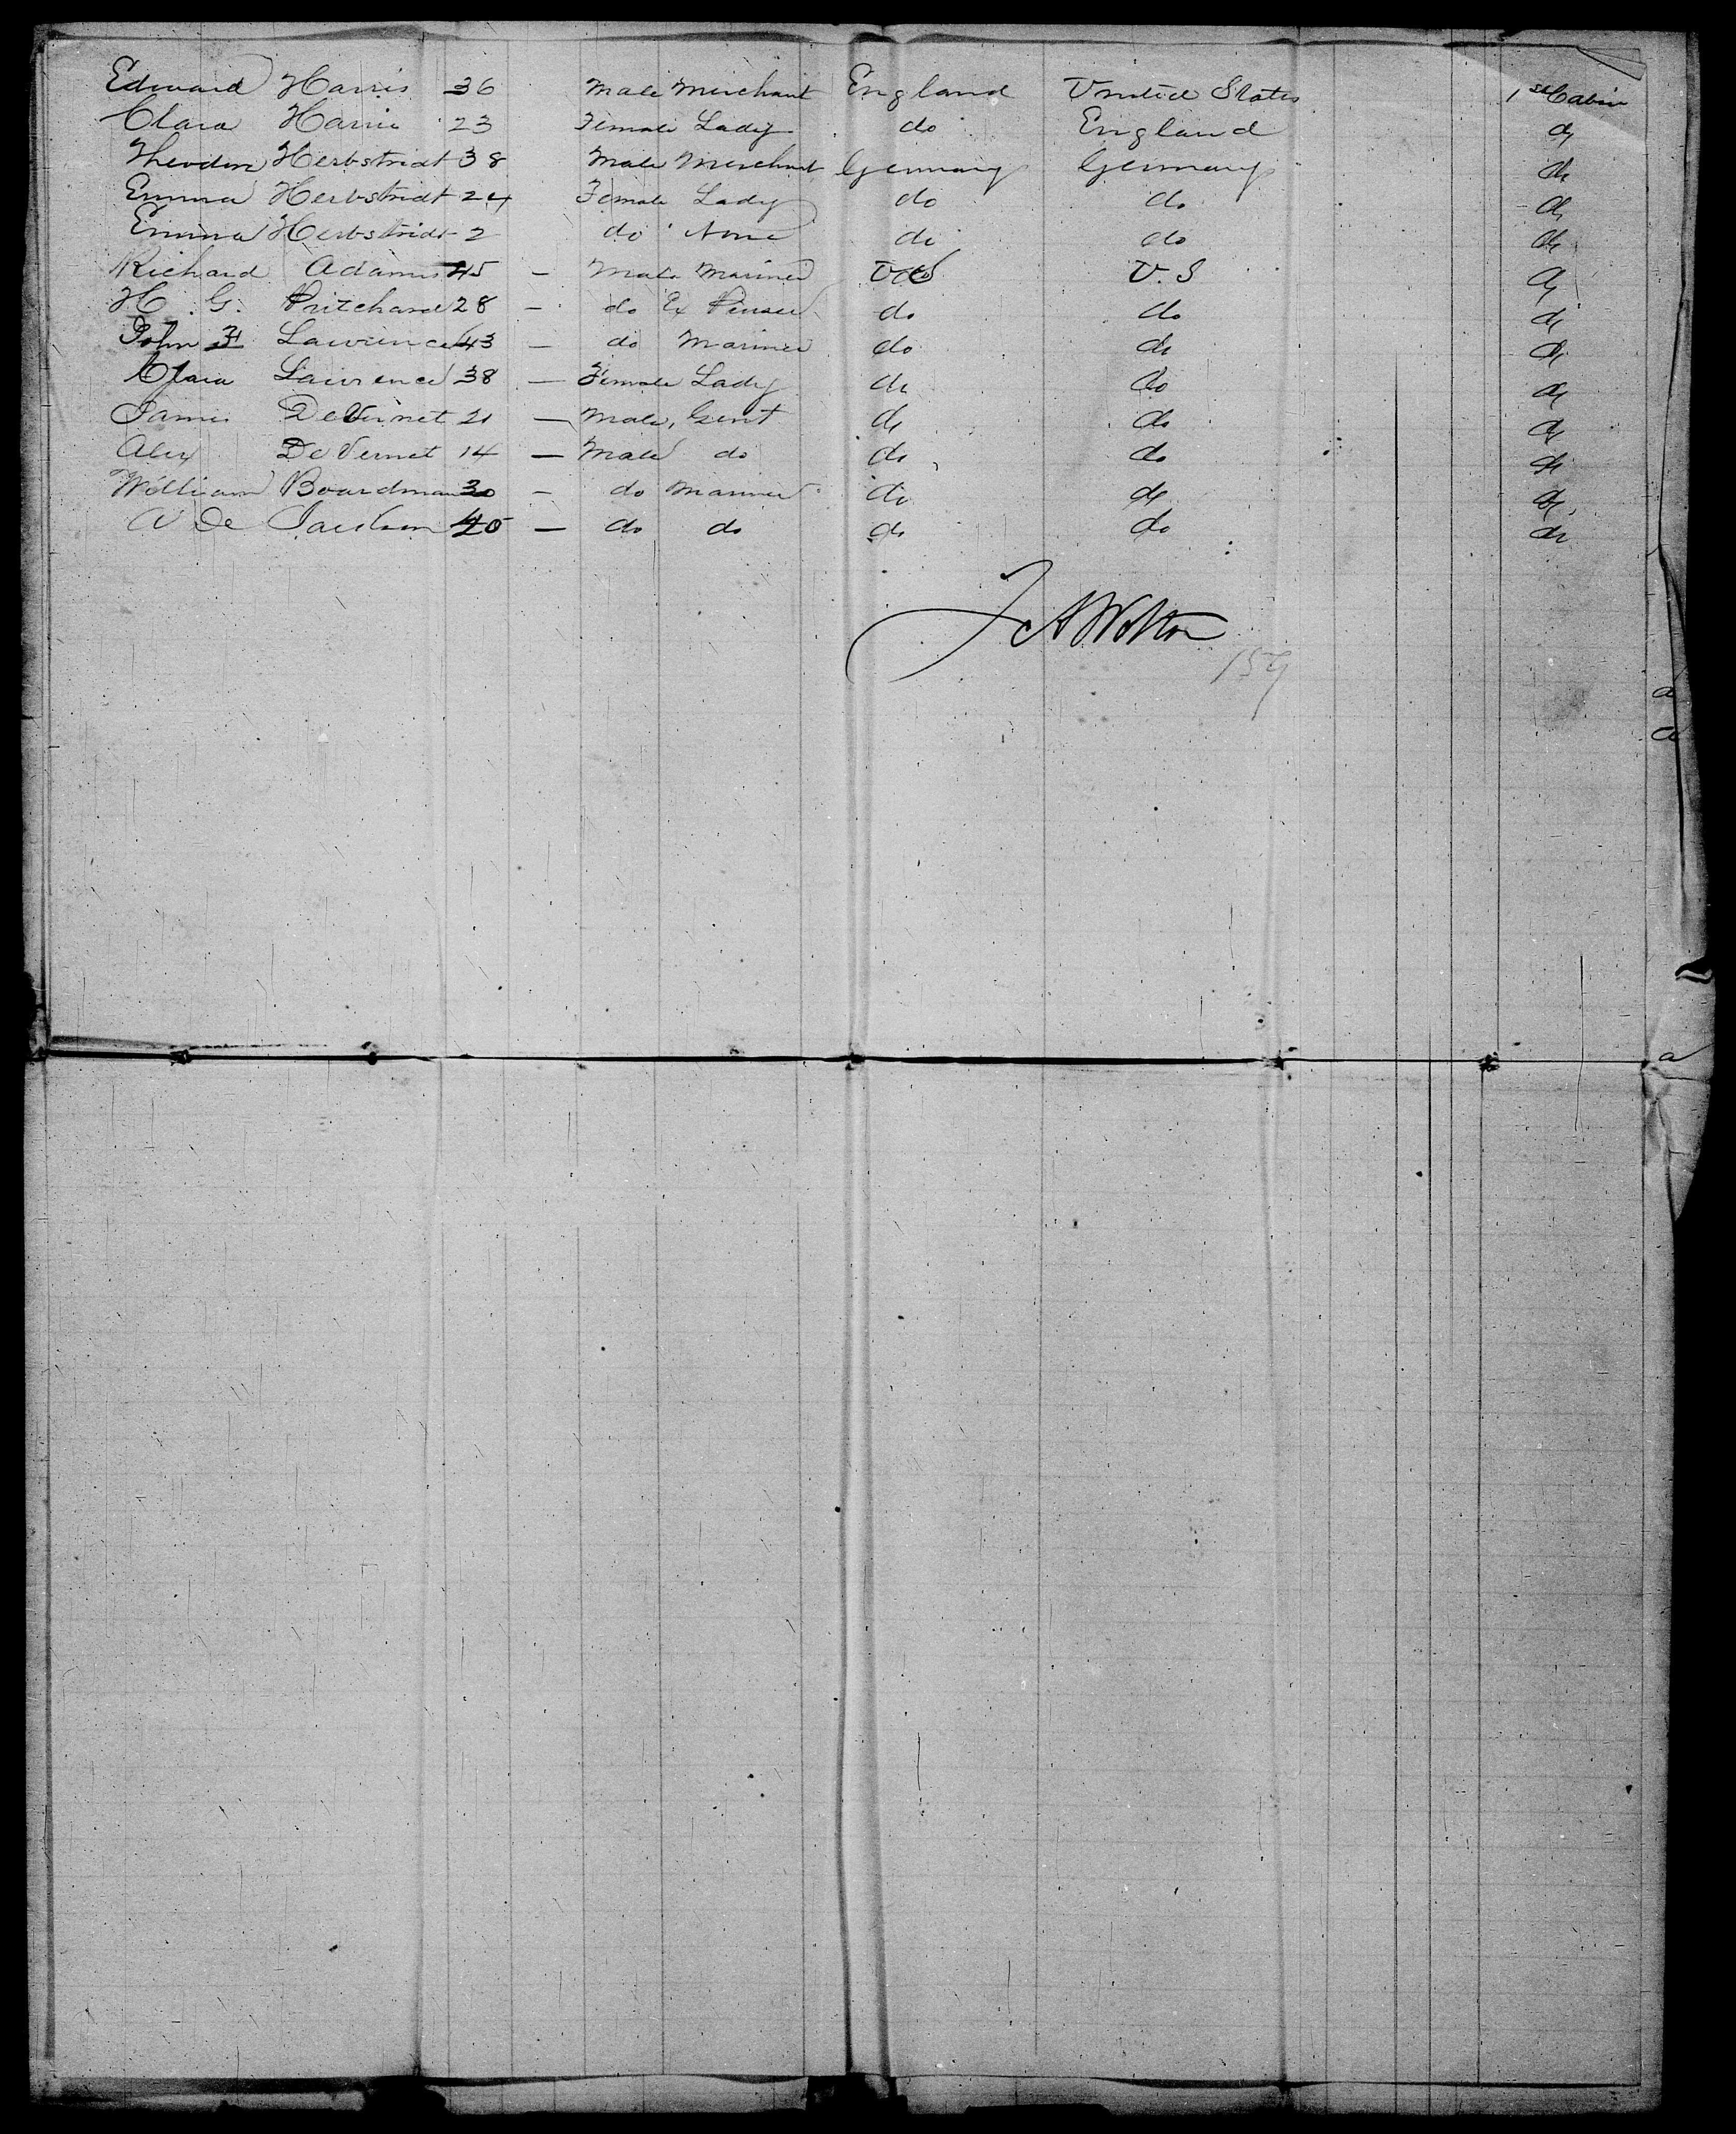 Edward Harris 36 Male Merchant England United States 1st Cabin
Clara Harris 23 Female Lady do England do
Theodor Herbstridt 38 Male Merchant Germany Germany do
Emma Herbstridt 24 Female Lady do do do
Emma Herbstridt 2 do None do do do
Richard Adams 45 — Male Mariner U.S U.S do
H. G. Pritchard 28 — do Ex do do do
John F Lawrence 43 — do Mariner do do do
Clara Lawrence 38 — Female Lady do do do
James DeVernet 21 — Male, Gent do do do
Alex DeVernet 14 — Male do do do do
William Boardman 30 — do Mariner do do do
De 45 — do do do do do
157
a
a
a